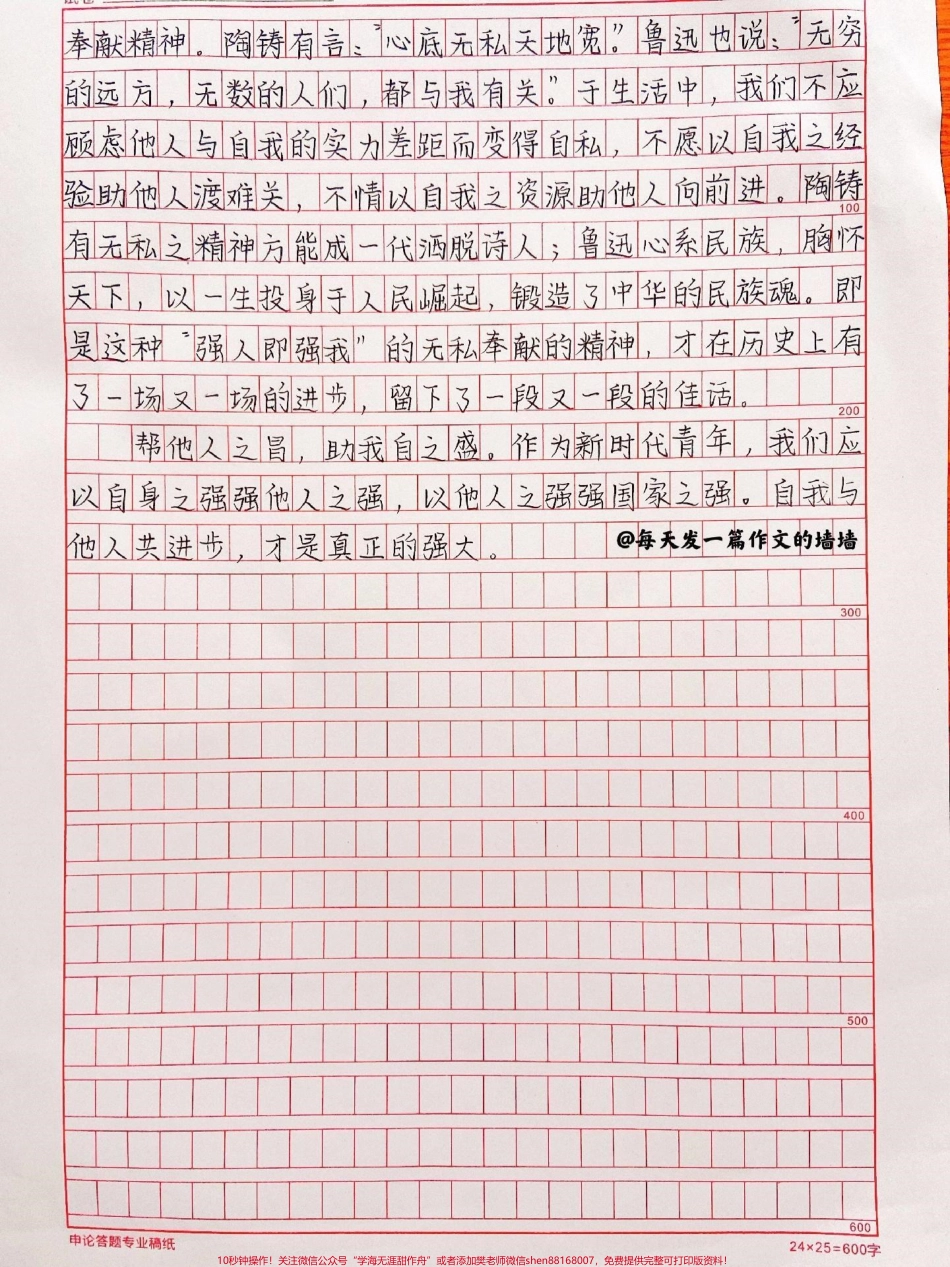 奉献精神。陶铸有言：“心底无私天地宽。”鲁迅也说：“无穷
的远方，无数的人们，都与我有关。”于生活中，我们不应
顾虑他人与自我的实力差距而变得自私，不愿以自我之经
验助他人渡难关，不情以自我之资源助他人向前进。陶铸
100
有无私之精神方能成一代洒脱诗人；鲁迅心系民族，胸怀
天下，以一生投身于人民崛起，锻造了中华的民族魂。即
是这种“强人即强我”的无私奉献的精神，才在历史上有
了一场又一场的进步，留下了一段又一段的佳话。
200
帮他人之昌，助我自之盛。作为新时代青年，我们应
以自身之强强他人之强，以他人之强强国家之强。自我与
他人共进步，才是真正的强大。
@每天发一篇作文的墙墙
300
400
500
600
申论答题专业稿纸
24×25=600字
10秒钟操作！关注微信公众号“学海无涯甜作舟”或者添加樊老师微信shen88168007，免费提供完整可打印版资料！